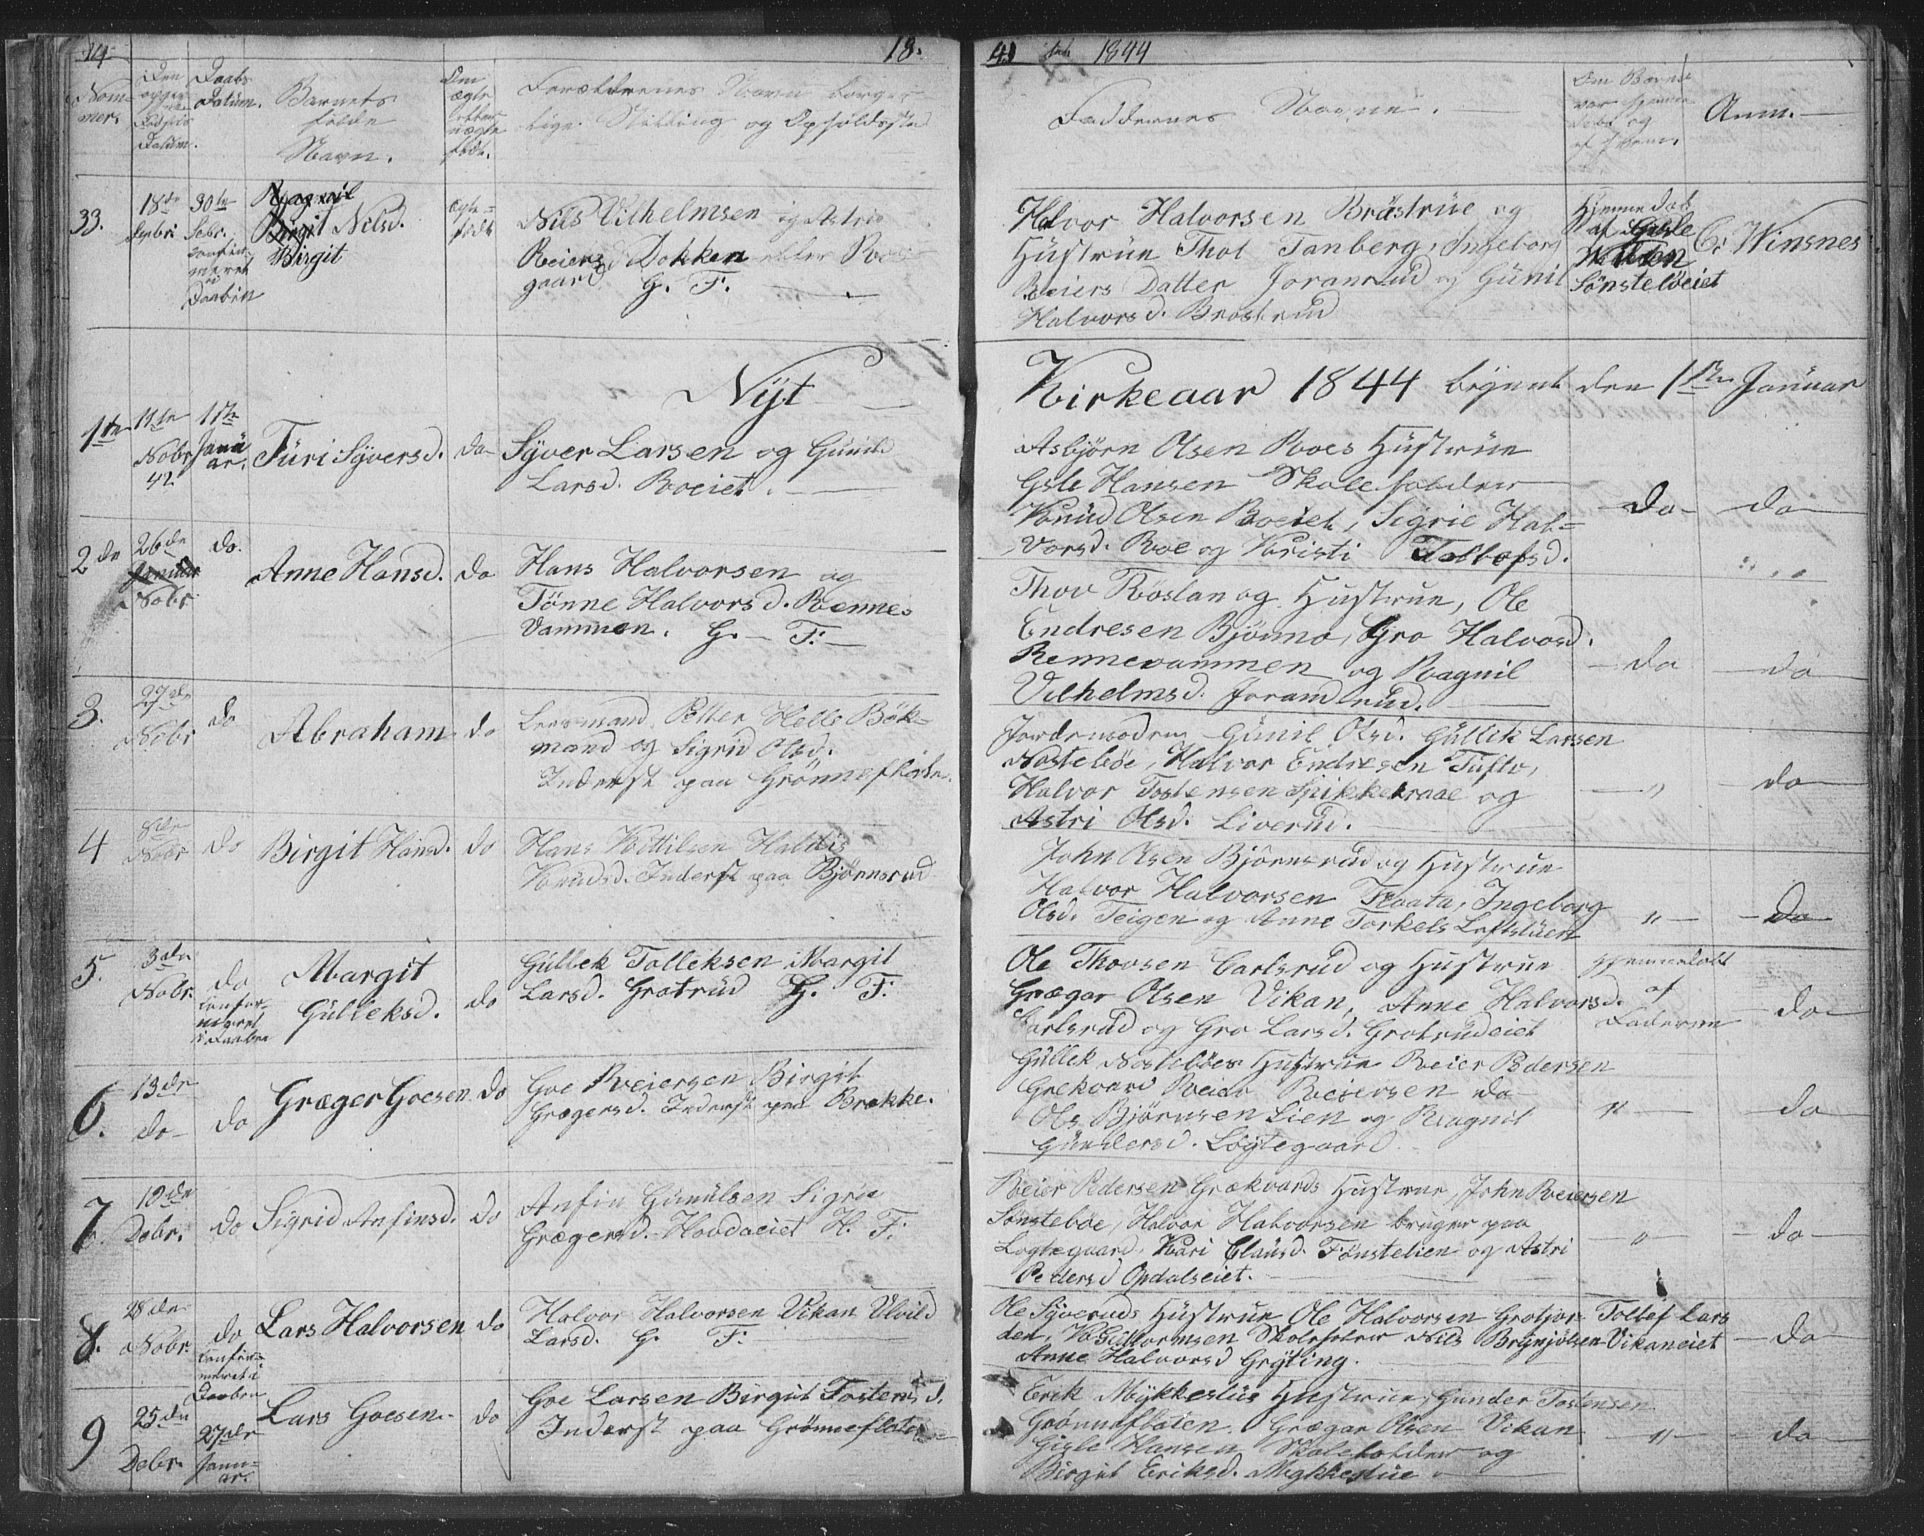 14 18. 41 1844
Nom-
mer.
Datum.
Daabs
Datum.
Barnets
fulde
Navn.
Om
ægte
eller
uægte
født.
Forældrenes Navn borger-
lige Stilling og Opholdssted
Faddernes Navne.
Om Barnet
var hjemme
døbt og
af hvem.
Anm.
33.
18de
Sepbr.
30te
Sebr.
confir-
meret
Daaben
Ragnil
Birgit Nelsd.
Birgit
ægte
født
Nils Vilhelmsen og Astrie
Reiersd Dokken eller Roe
gaard G. F.
Halvor Halvorsen Bråstrue og
Hustrue Thol Tanberg, Ingeborg
Reiers Datter Joranrud og Gunil
Halvorsd. Brostrud
Hjemmedøb
af Gisle
Sønsteböeiet
C: Winsnes
Nÿt Kirkeaar 1844 begynt den 1te Januar
1te
11te
Nobr
42
1te
Janu
ar.
Turi Syversd.
do
Syver Larsen og Gunild
Larsd. Roeiet.
Asbjørn Olsen Roes Hustrue
Gsle Hansen Skoleholder
Knud Olsen Roeiet, Sigrie Hal-
vorsd. Roe og Kristi Tollefsd.
do
do
2de
26de
Januar
Nobr
do.
Anne Hansd.
do
Hans Halvorsen og
Tønne Halvorsd. Renne-
vammen. G. F.
Thov Röslan og Hustrue, Ole
Endresen Bjönno, Gro Halvosd.
Rennevammen og Ragnil
Vilhelmsd. Jorandrud.
do
do
3.
27de
Nobr
do
Abraham
do
Lensmand Petter Helle Bök-
mand og Sigrid Olsd.
Inderst paa Grönneflaten.
Jordemoder Gunil Olsd. Güllik Larsen
Nosteböe, Halvor Endresen Tufto,
Halvor Tostensen Spikkekraae og
Astri Olsd. Liverud.
"
do
4
8de
Nobr
do
Birgit Hansd.
do
Hans Kittilsen Haldis
Knudsd. Inderst paa Bjönnsrud
John Olsen Bjönnsrud og Hustrue
Halvor Halvorsen Traata, Ingeborg
Olsd. Teigen og Anne Torkels Loftstuen
"
do
5.
3die
Nobr.
do
confir-
meret
i Daaben
Margit
Gülleksd.
do
Güllek Tolleksen Margit
Larsd. Grotrud G. F.
Ole Thovsen Carlsrud og Hustrue
Grægar Olsen Vikan, Anne Halvorsd.
Carlsrud og Gro Larsd. Grotrudeiet
Hjemmedöbt
af
Faderen
do
6.
13de
do
do
Græger Goesen
do
Goe Reiersen Birgit
Grægersd. Inderst paa Brække.
Güllek Nosteböes Hustrue Reier Pedersen
Grekvard Reier Reiersen do
Ole Bjørnsen Lien og Ragnil
Gundersd. Løgtegaard
"
do
7.
12de
Debr.
do
Sigrid Anfinsd.
do
Anfin Gunulsen Sigrie
Grægersd. Hovdaeiet H. F.
Reier Pedersen Grækvards Hustrue, John Reiersen
Sönsteböe, Halvor Halvorsen bruger paa
Logtegaard, Kari Clausd. Tönstelien og Astri
Pedersd Opdalseiet.
"
do
8.
28de
Nobr.
do
confir-
meret i
Daaben
Lars Halvorsen
do
Halvor Halvorsen Vikan Ulvild
Larsd. G. F.
Ole Syveruds Hustrue Ole Halvorsen Grotjor-
det, Skoleholder Nils Brynjolsen
Anne Halvorsd Gryting.
Tollef Lars
Vikaneiet
do
9
25de
Debr.
27de
Janu-
ar.
Lars Goesen
do
Goe Larsen Birgit Tostensd.
Inderst paa Grönneflaten
Erik Mykkestue Hustrue, Gunder Tostensen
Grönneflaten. Grægar Olsen Vikan
Gisle Hansen Skoleholder og
Birgit Eriksd. Mykkestue
"
do